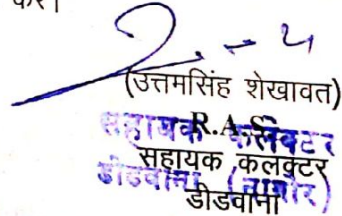 करें।
(उत्तमसिंह शेखावत)
R.A.S.
सहायक कलेक्टर
सहायक कलक्टर
डीडवाना (नागौर)
डीडवाना